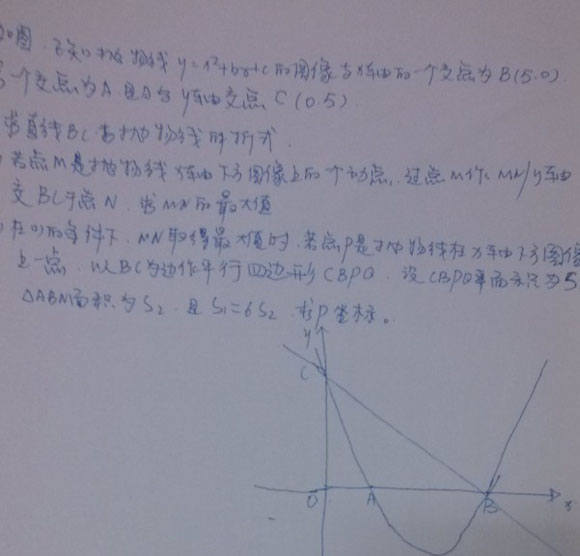 如图,已知抛物线y=x²+bx+c的图像与x轴的一个交点为B(5.0)
另一个交点为A,且与y轴交点C(0.5)
求直线BC与抛物线的解析式
若点M是抛物线x轴下方图像上的个动点,过点M作MN//y轴
交BC于点N,求MN的最大值
在(1)的条件下,MN取得最大值时,若点P是抛物线在x轴下方图像
上一点,以BC为边作平行四边形CBPQ,设CBPQ平面积为S
△ABN面积为S₂,且S₁=6S₂,求P坐标。
y
C
O A B x